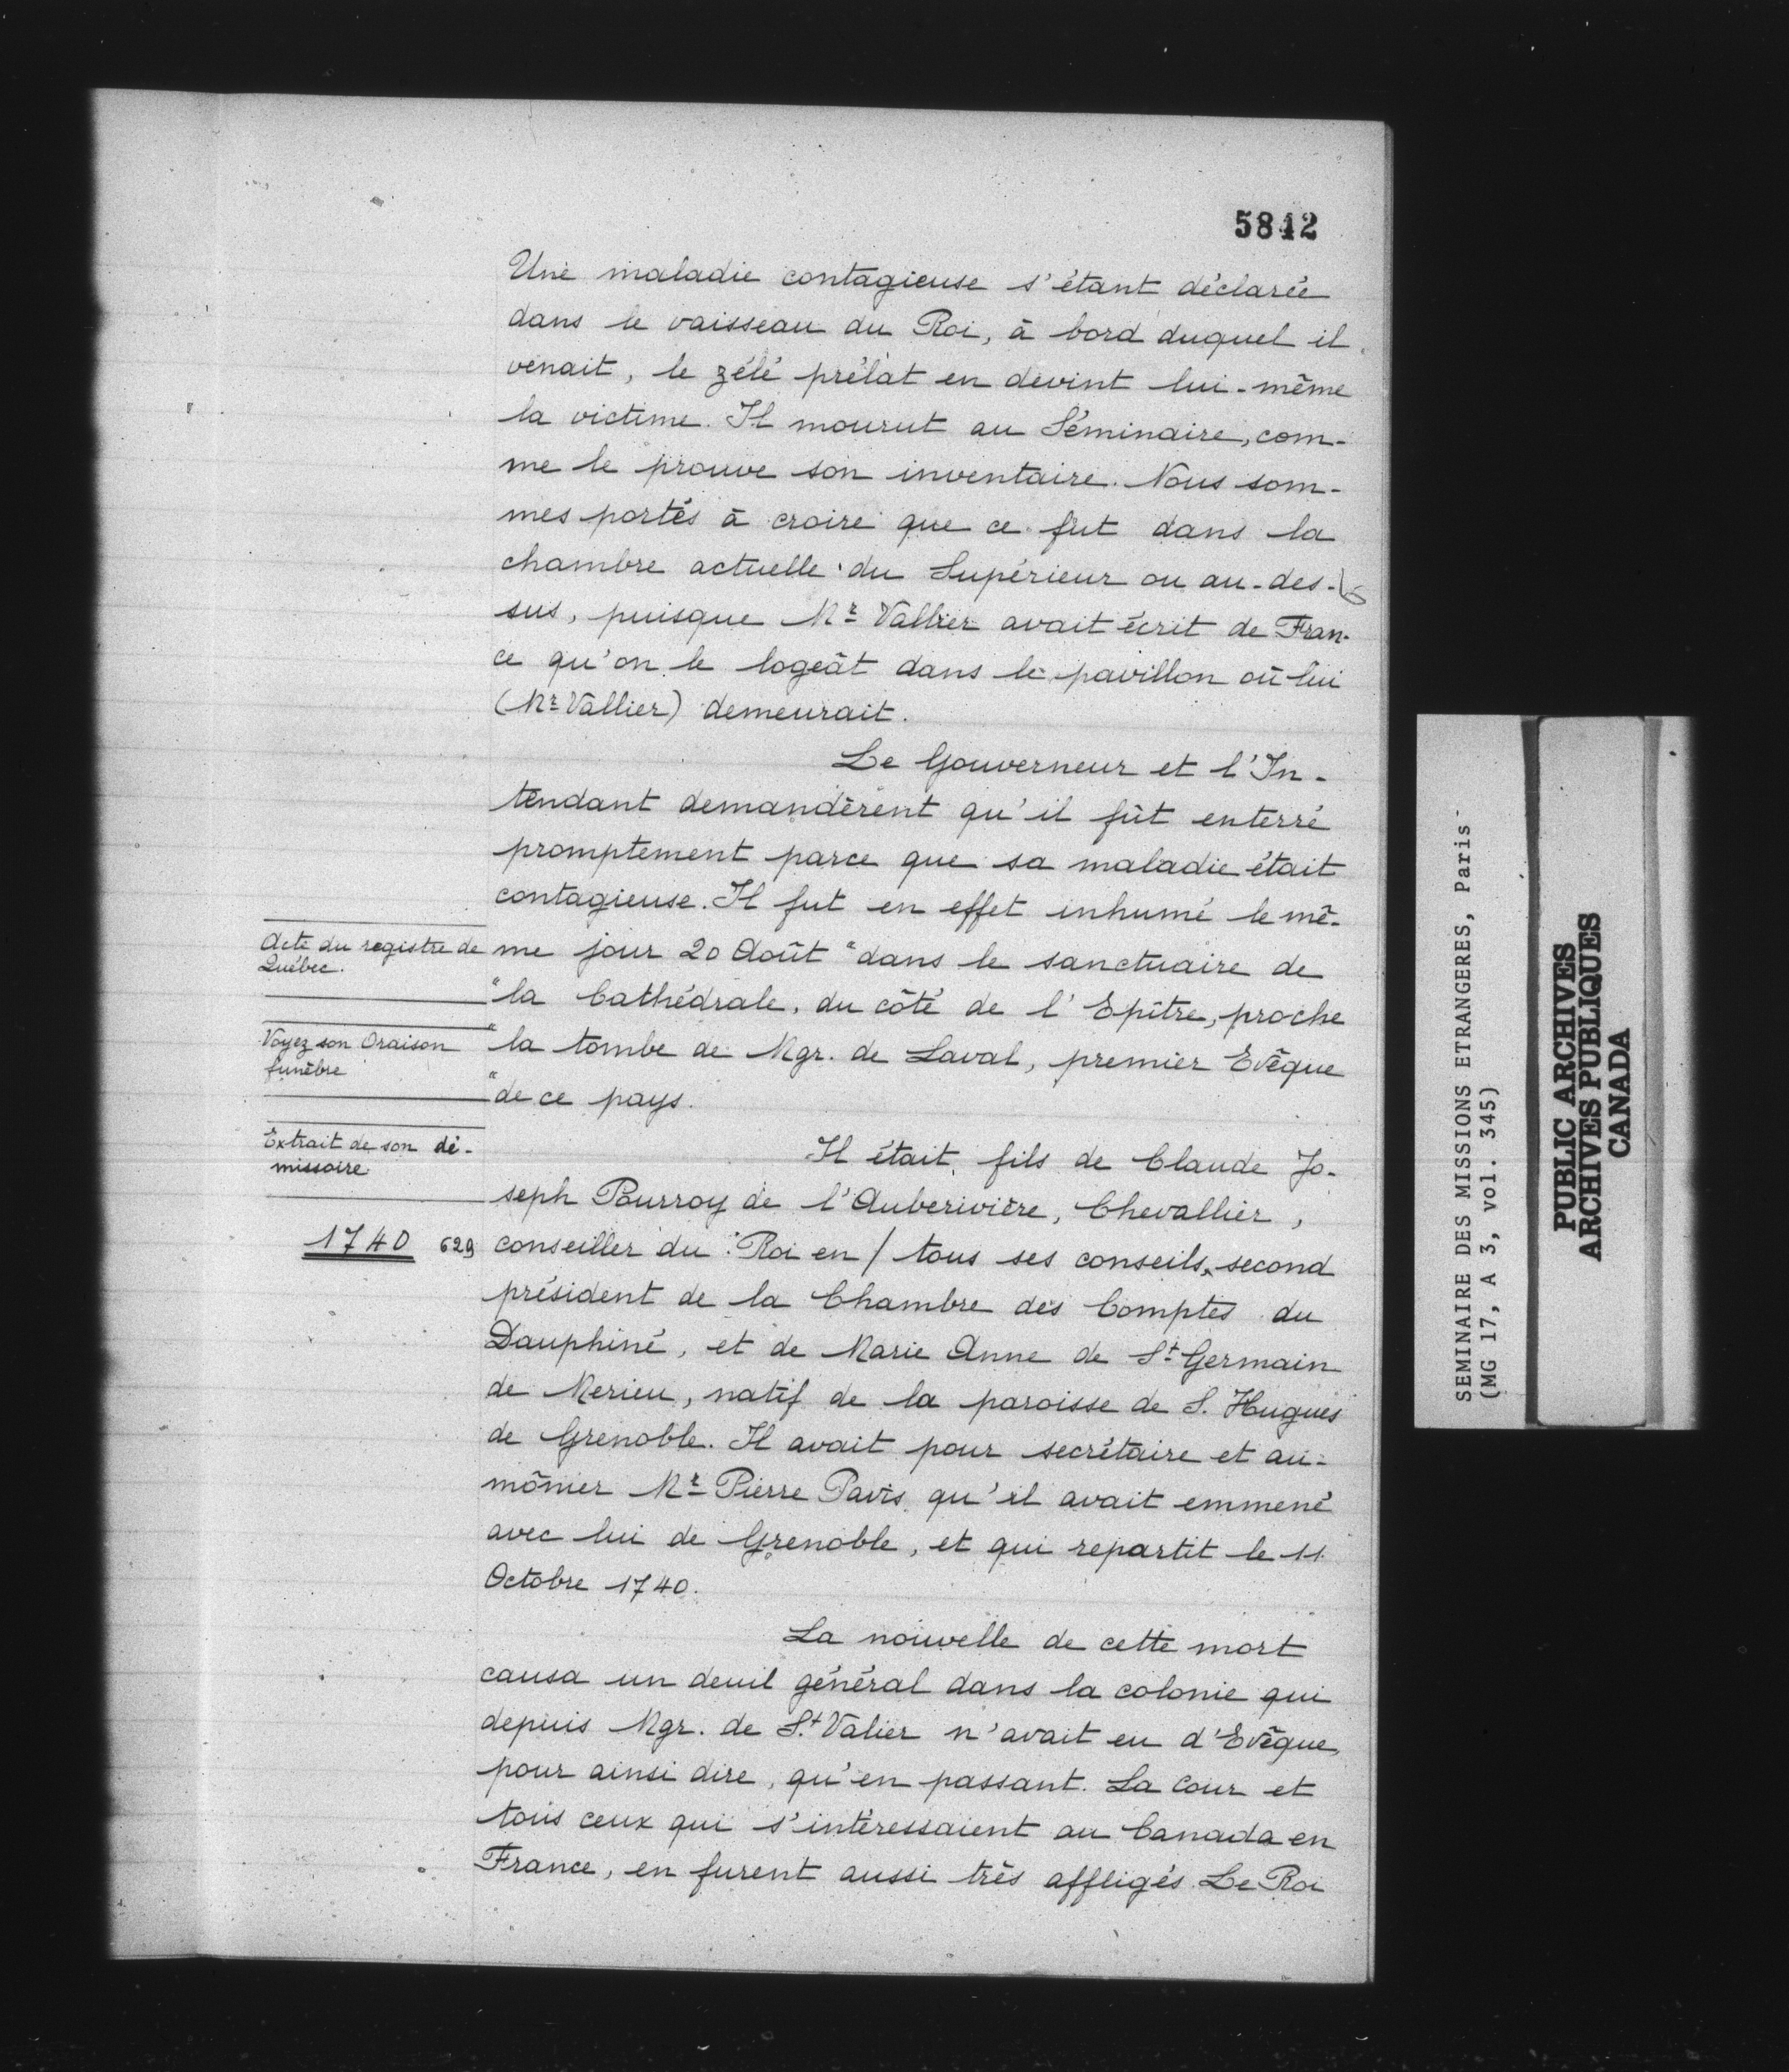 5842
Une maladie contagieuse s'étant déclarée
dans le vaisseau du Roi, à bord duquel il
venait, le zélé prélat en devint lui-même
la victime. Il mourut au Séminaire, com-
me le prouve son inventaire. Nous som-
mes portés à croire que ce fut dans la
chambre actuelle du Supérieur ou au-des-
sus, puisque Mr Vallier avait écrit de Fran-
ce qu'on le logeât dans le pavillon où lui
(Mr Vallier) demeurait.
Le Gouverneur et l'In-
tendant demandèrent qu'il fût enterré
promptement parce que sa maladie était
contagieuse. Il fut en effet inhumé le mê-
Acte du registre de
Québec.
me jour 20 Août "dans le sanctuaire de
"la Cathédrale, du côté de l'Epître, proche
Voyez son Oraison
funèbre
"la tombe de Mgr. de Laval, premier Evêque
"de ce pays.
Extrait de son dé-
missoire
Il était fils de Claude Jo-
seph Pourroy de l'Auberivière, Chevallier,
1740 629
conseiller du Roi en / tous ses conseils, second
président de la Chambre des Comptes du
Dauphiné, et de Marie Anne de St Germain
de Merieu, natif de la paroisse de S. Hugues
de Grenoble. Il avait pour secrétaire et au-
mônier Mr Pierre Pavis qu'il avait emmené
avec lui de Grenoble, et qui repartit le 11
Octobre 1740.
La nouvelle de cette mort
causa un deuil général dans la colonie qui
depuis Mgr. de St Valier n'avait eu d'Evêque,
pour ainsi dire, qu'en passant. La Cour et
tous ceux qui s'intéressaient au Canada en
France, en furent aussi très affligés. Le Roi
SEMINAIRE DES MISSIONS ETRANGERES, Paris
(MG 17, A 3, vol. 345)
PUBLIC ARCHIVES
ARCHIVES PUBLIQUES
CANADA